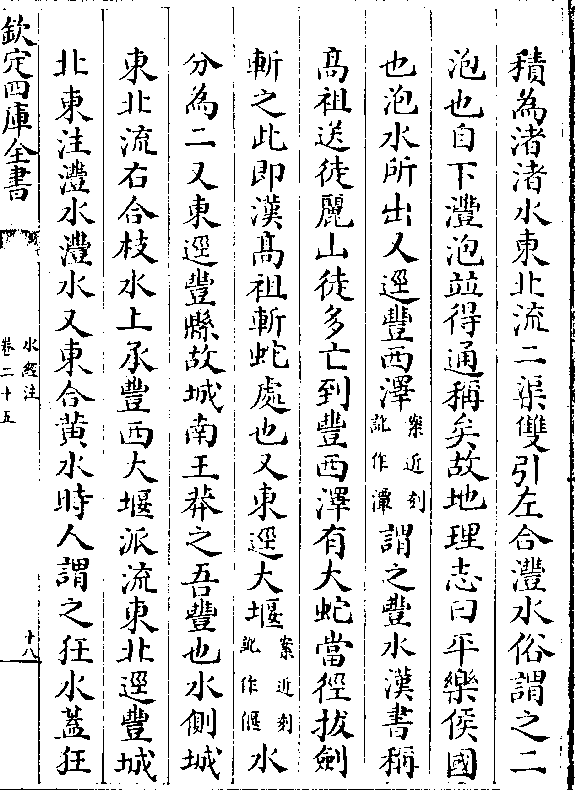 積為渚渚水東北流二渠雙引左合灃水俗謂之二
泡也自下灃泡並得通稱矣故地理志曰平樂侯國
也泡水所出又逕豐西澤案近刻訛作灃謂之豐水漢書稱
髙祖送徒麗山徒多亡到豐西澤有大蛇當徑拔劍
斬之此即漢髙祖斬蛇處也又東逕大堰案近刻訛作偃水
分為二又東逕豐縣故城南王莽之吾豐也水側城
東北流右合枝水上承豐西大堰派流東北逕豐城
北東注灃水灃水又東合黄水時人謂之狂水蓋狂
欽定四庫全書
水經注
卷二十五
十八